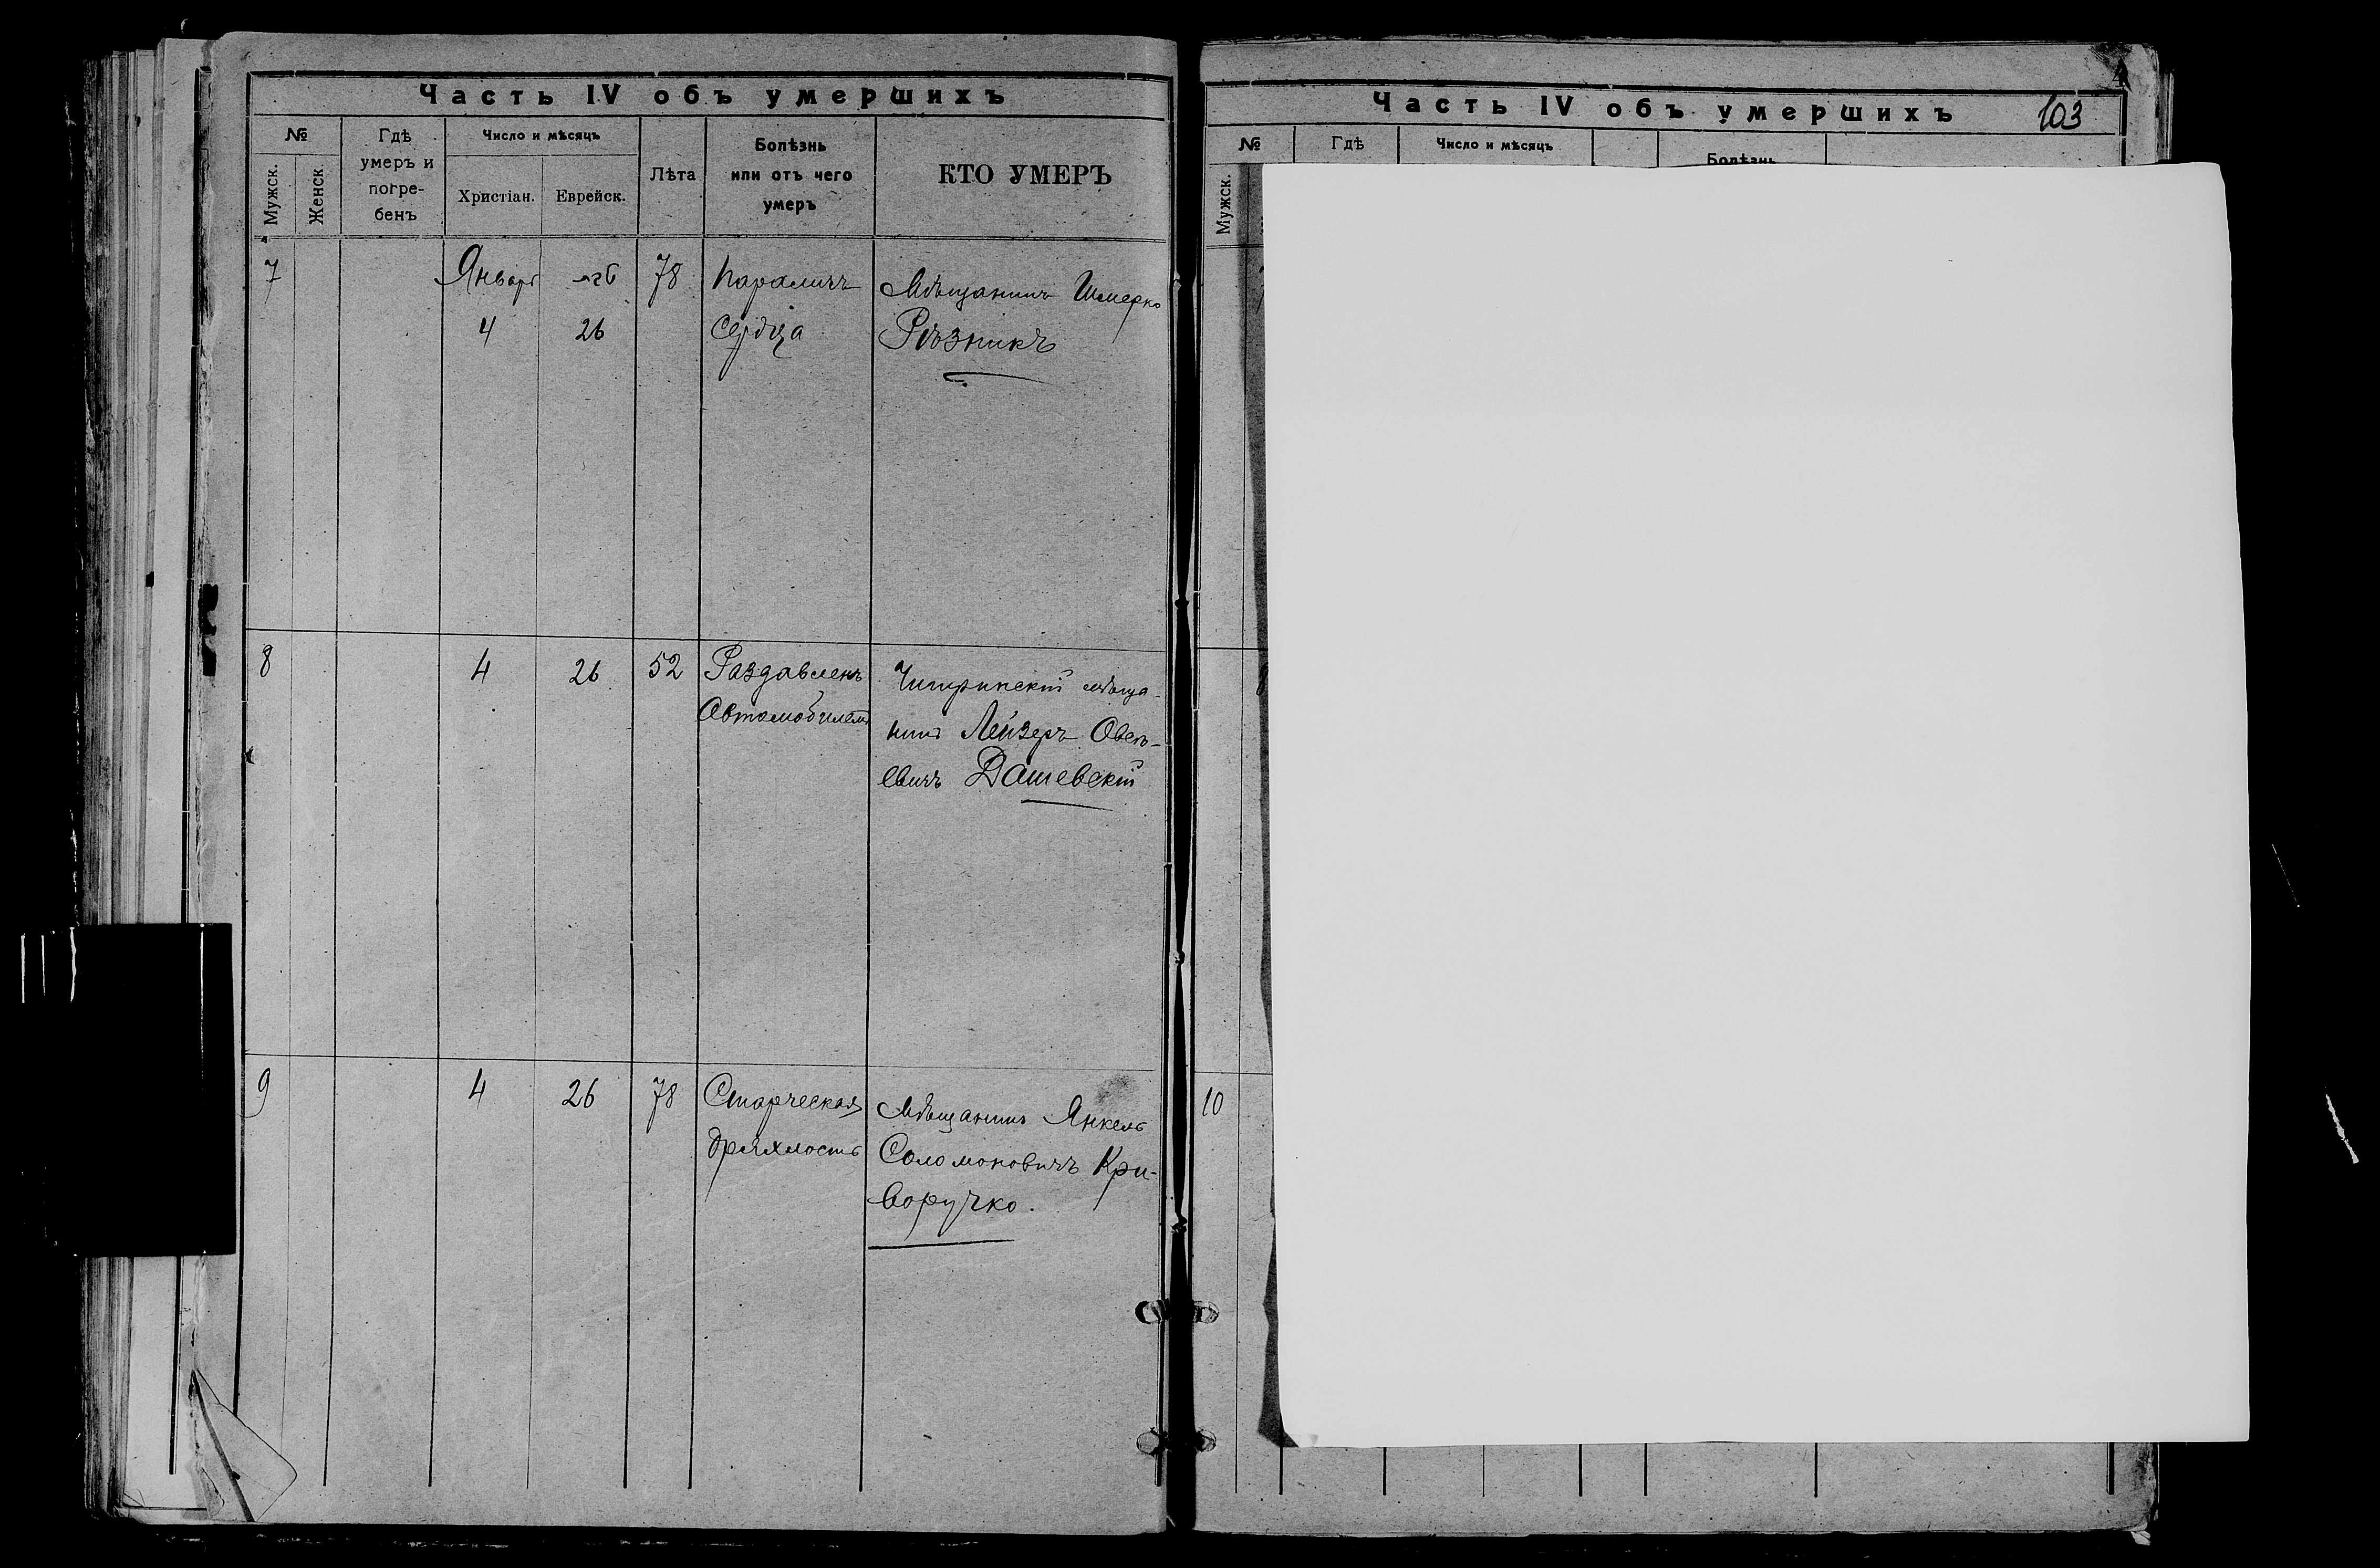 Часть IV объ умершихъ
№
Мужск.
Женск.
Гдѣ
умеръ и
погре-
бенъ
Число и мѣсяцъ
Христіан.
Еврейск.
Лѣта
Болѣзнь
или отъ чего
умеръ
КТО УМЕРЪ
7 Январь 78 Параличъ Мѣщанинъ Шмерко
4 26 Сердца Рѣзникъ
8 4 26 52 Раздавленъ Чигиринскій мѣща-
Автомобилемъ нинъ Лейзеръ Овсѣ-
евичъ Дашевскій
9 4 26 78 Старческая Мѣщанинъ Янкель
дряхлость Соломоновичъ Кри-
воручко.
Часть IV объ умершихъ 103
№
Мужск.
Гдѣ
Число и мѣсяцъ
Болѣзнь
10